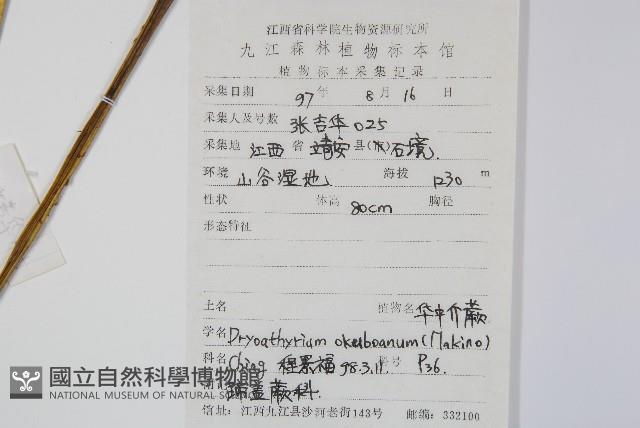 江西省科学院生物资源研究所
九江森林植物标本馆
植物标本采集记录
采集日期 97年 8月 16日
采集人及号数 张吉华 025
采集地 江西 省 靖安 县(市) 石境
环境 山谷湿地 海拔 1230 m
性状 体高 80cm 胸径
形态特征
土名 植物名 华中介蕨
学名 Dryoathyrium okuboanum (Makino)
科名 Ching 程景福 98.3.11 科号 P36.
蹄盖蕨科
馆址:江西九江县沙河老街143号 邮编:332100
國立自然科學博物館
NATIONAL MUSEUM OF NATURAL